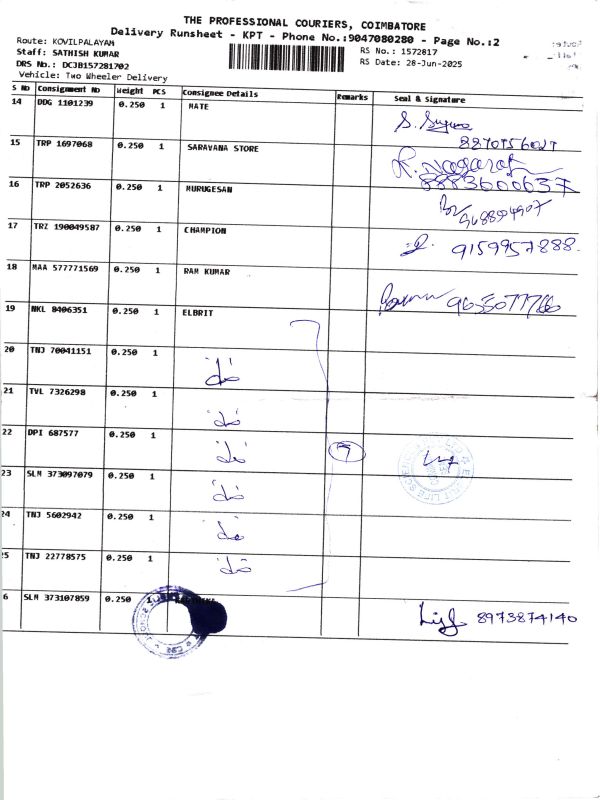 THE PROFESSIONAL COURIERS, COIMBATORE
Delivery Runsheet - KPT - Phone No.:9047080280 - Page No.:2
Route: KOVILPALAYAM
RS No.: 1572817
Staff: SATHISH KUMAR
RS Date: 28-Jun-2025
DRS No.: DCJB157281702
Vehicle: Two Wheeler Delivery
S No Consignment No Weight PCS Consignee Details Remarks Seal & Signature
14 DDG 1101239 0.250 1 MATE
15 TRP 1697068 0.250 1 SARAVANA STORE
8883600637
16 TRP 2052636 0.250 1 MURUGESAN
17 TRZ 190049587 0.250 1 CHAMPION
9159957888
18 MAA 577771569 0.250 1 RAM KUMAR
19 NKL 8406351 0.250 1 ELBRIT
20 TNJ 70041151 0.250 1 do
21 TVL 7326298 0.250 1 do
22 DPI 687577 0.250 1 do 7
23 SLM 373097079 0.250 1 do
24 TNJ 5602942 0.250 1 do
25 TNJ 22778575 0.250 1 do
6 SLM 373107859 0.250 1
8973874140